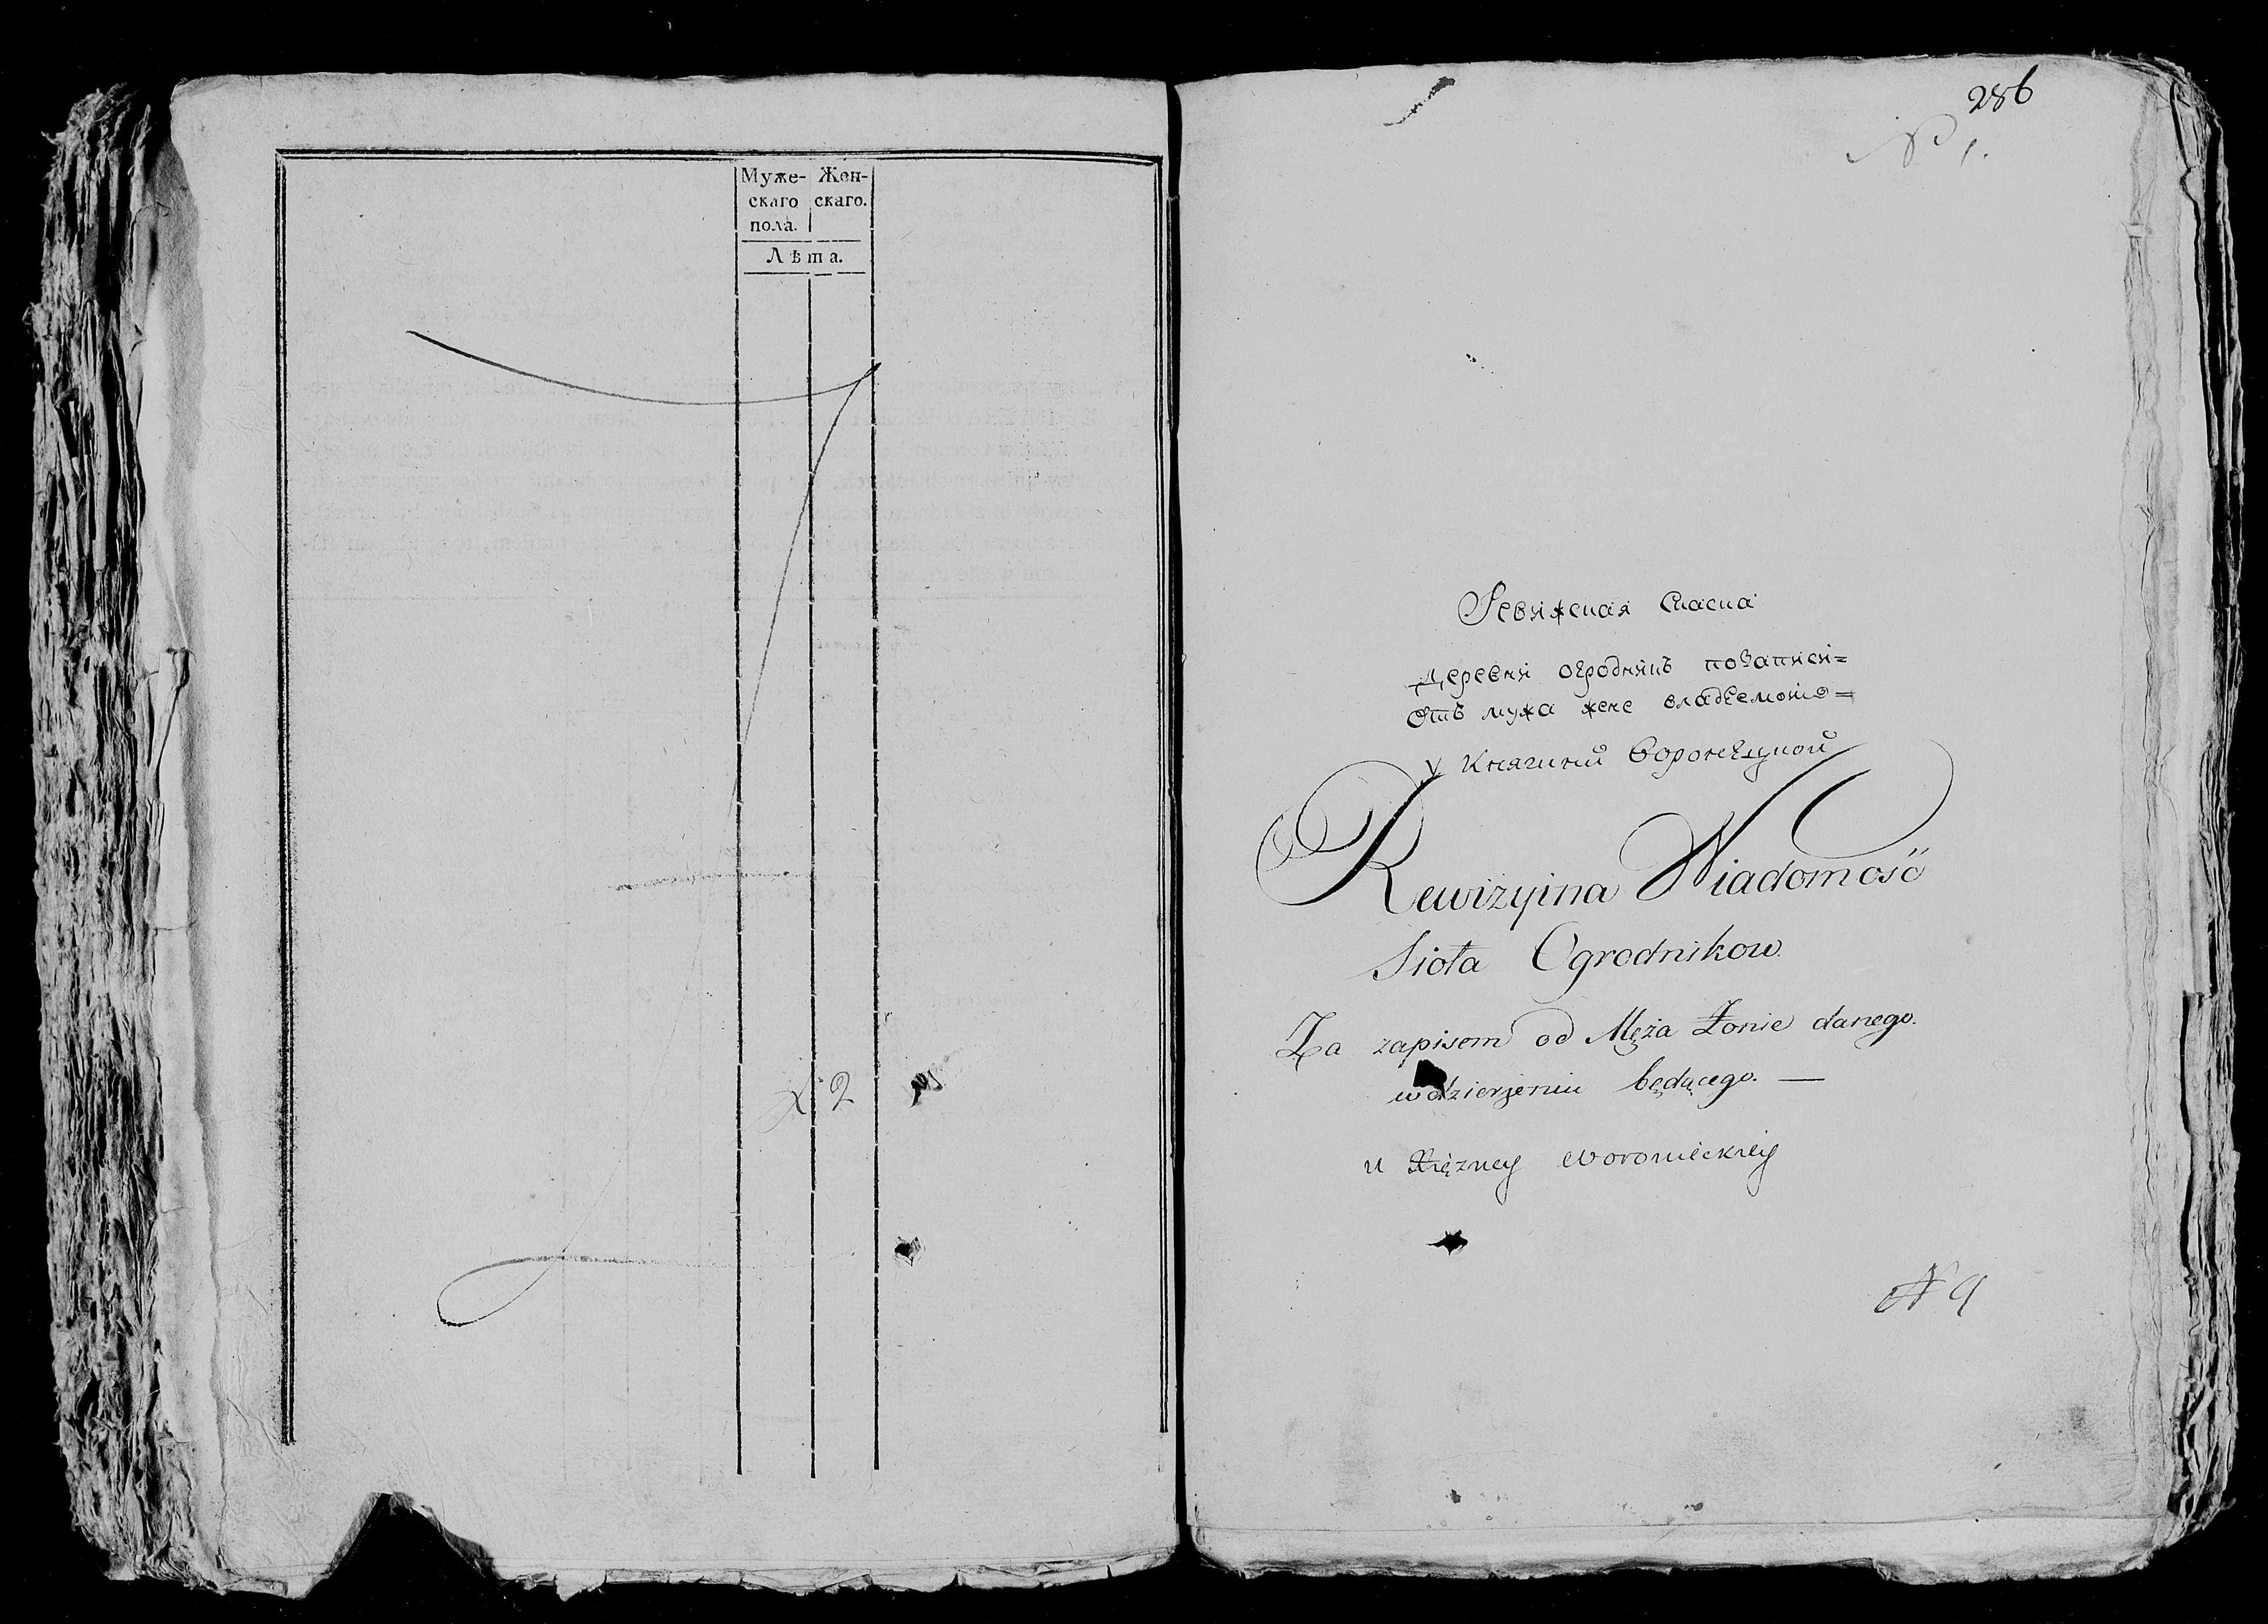 Муже- Жен-
скаго скаго.
пола.
Лѣта.
2
286
№ 1.
Ревижская Сказка
Деревни огродникъ позаписи=
Отъ мужа жене владѣемото=
у Княгини Воронецкой
Rewizyina Wiadomość
Sioła Ogrodnikow.
Za zapisem od Męża Żonie danego.
w dzierżeniu będącego. —
u Xiężney Woronieckiey
N 9